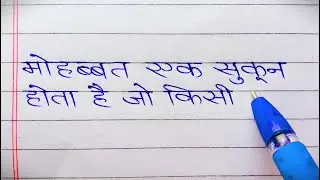 मोहब्बत एक सुकून
होता है जो किसी